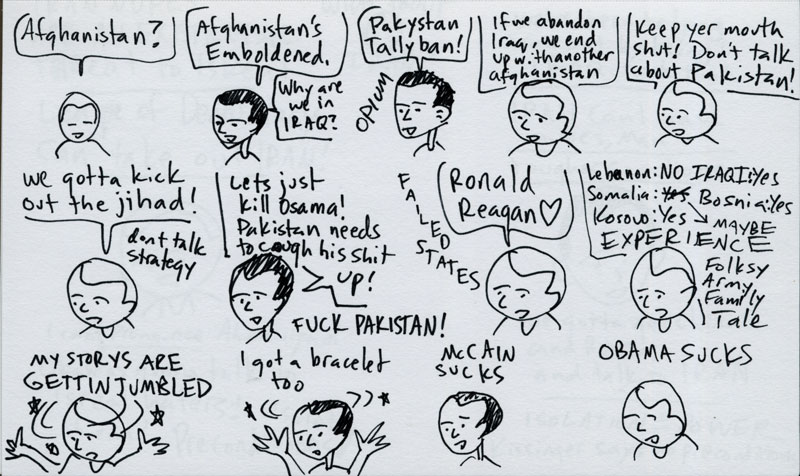 Afghanistan?
Afghanistan's
Emboldened.
Why are
we in
IRAQ?
Pakystan
Tallyban!
OPIUM
If we abandon
Iraq, we end
up with another
afghanistan
Keep yer mouth
shut! Don't talk
about Pakistan!
we gotta kick
out the jihad!
dont talk
strategy
Lets just
kill Osama!
Pakistan needs
to cough his shit
up!
FUCK PAKISTAN!
FAILED
STATES
Ronald
Reagan♡
Lebanon: NO IRAQI: Yes
Somalia: Yes Bosnia: Yes
Kosovo: Yes MAYBE
EXPERIENCE
Folksy
Army
Family
Tale
MY STORYS ARE
GETTIN JUMBLED
I got a bracelet
too
McCAIN
SUCKS
OBAMA SUCKS